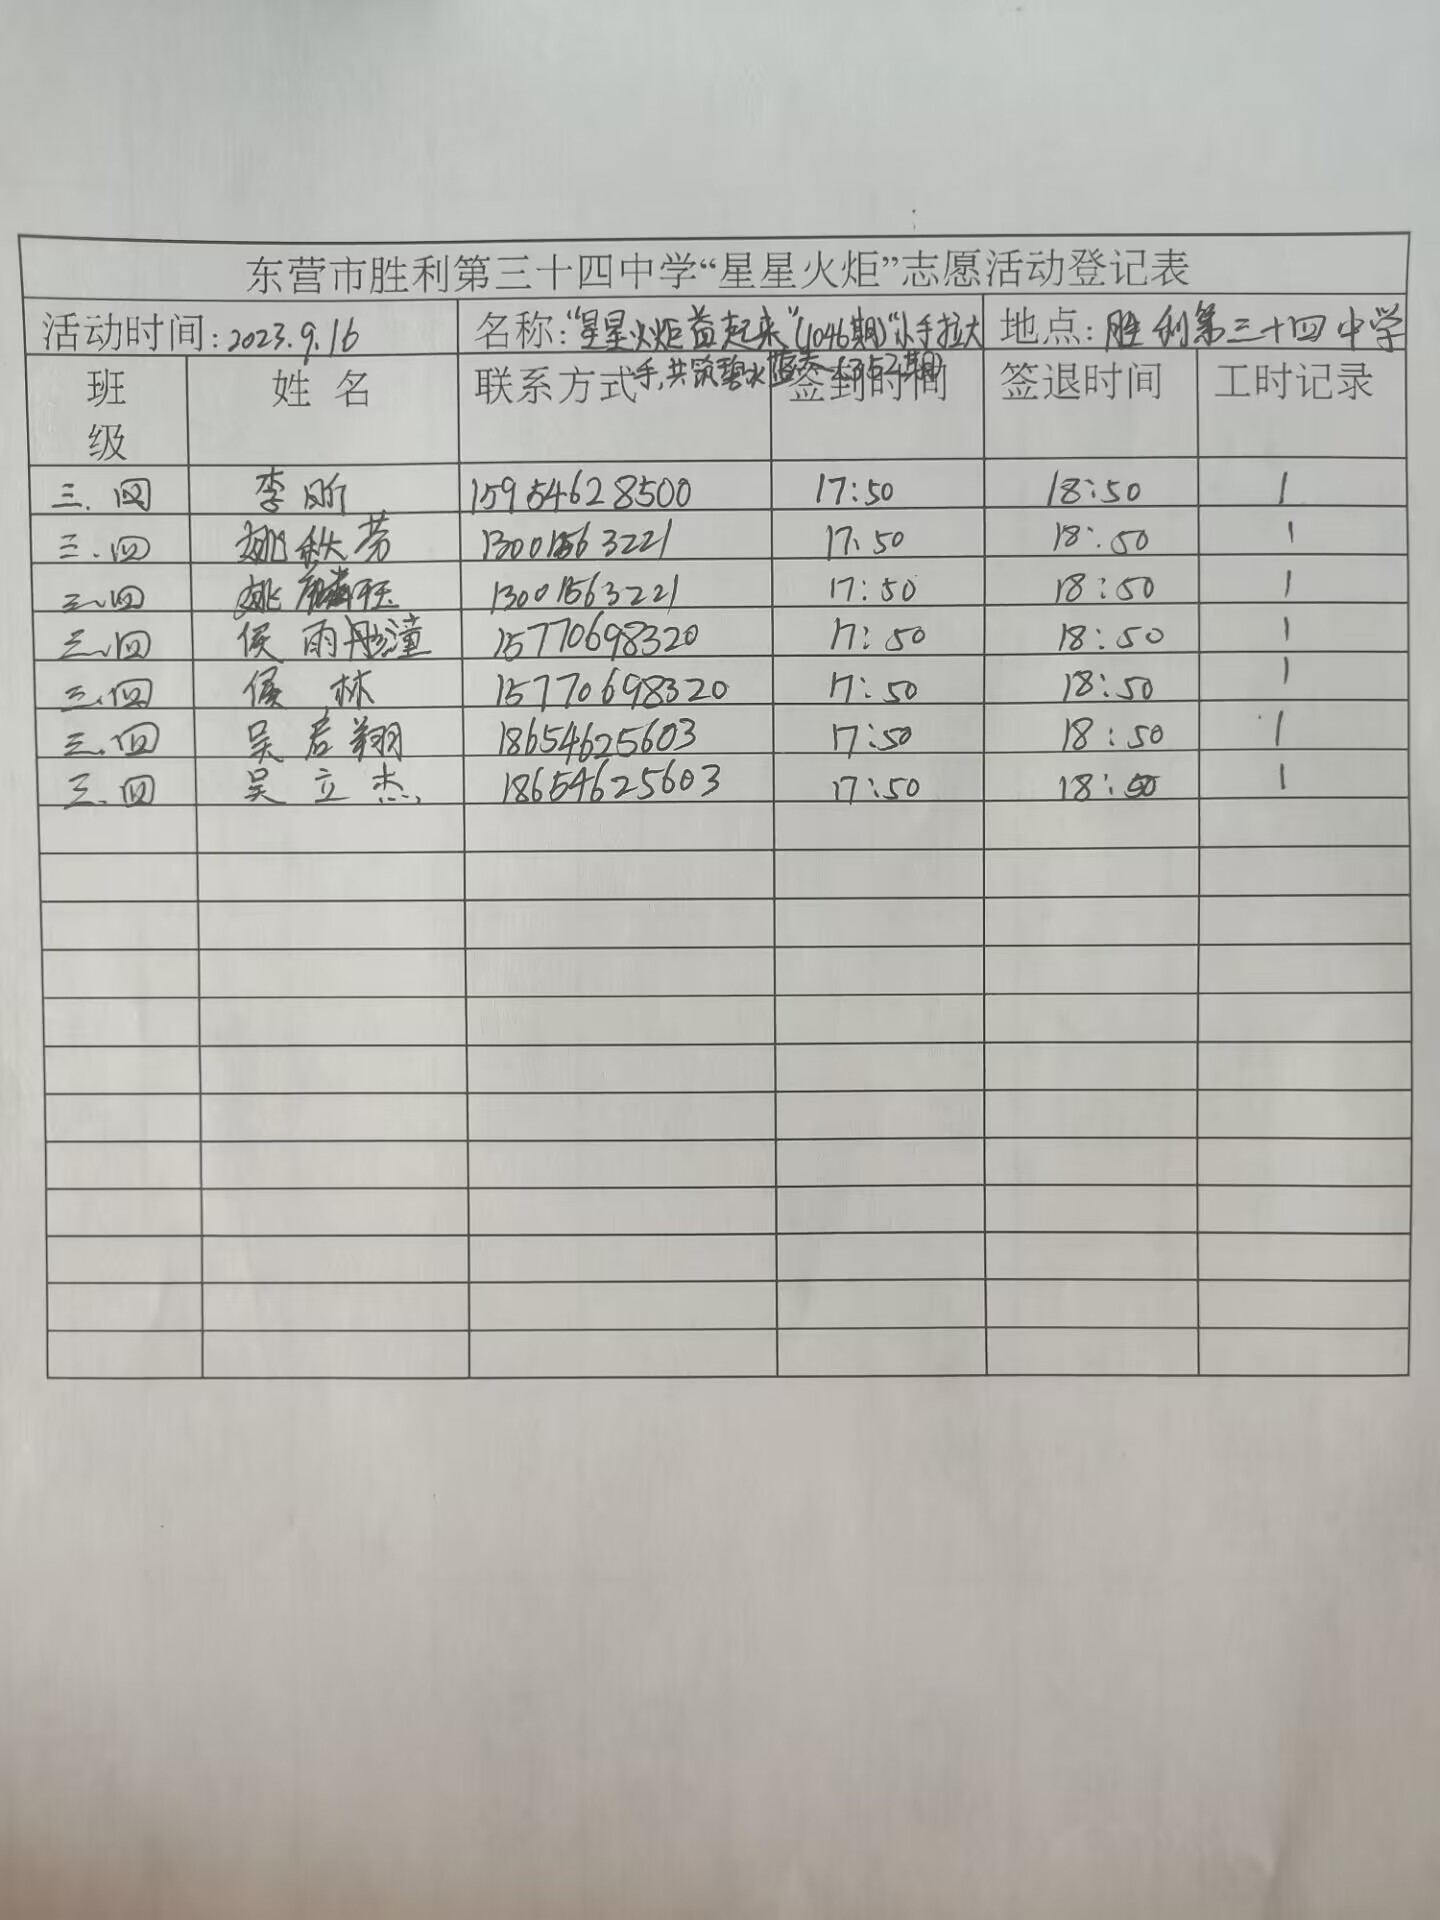 东营市胜利第三十四中学“星星火炬”志愿活动登记表
活动时间:2023.9.16 名称:“星星火炬益起来”(1046期)“小手拉大 地点:胜利第三十四中学
手,共筑碧水蓝天(352期)
班级 姓名 联系方式 签到时间 签退时间 工时记录
三.四 李昕 15954628500 17:50 18:50 1
三.四 姚秋芳 13001563221 17:50 18:50 1
三.四 姚 13001563221 17:50 18:50 1
三.四 侯雨彤潼 15770698320 17:50 18:50 1
三.四 侯林 15770698320 17:50 18:50 1
三.四 吴启翔 18654625603 17:50 18:50 1
三.四 吴立杰 18654625603 17:50 18:50 1